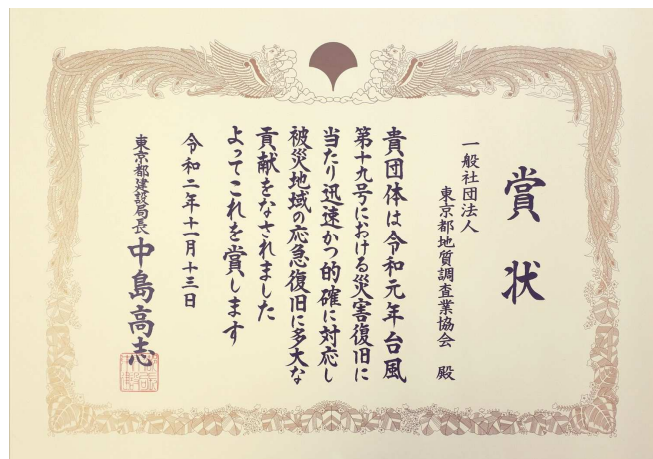 賞状
一般社団法人
東京都地質調査業協会 殿
貴団体は令和元年台風
第十九号における災害復旧に
当たり迅速かつ的確に対応し
被災地域の応急復旧に多大な
貢献をなされました
よってこれを賞します
令和二年十一月十三日
東京都建設局長 中島高志